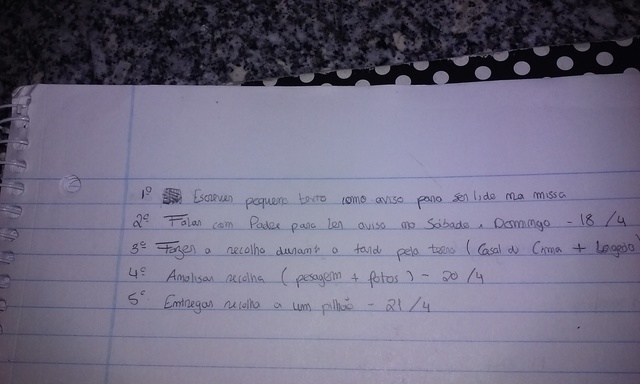 1º Escrever pequeno texto como aviso para ser lido na missa
2º Falar com Padre para ler aviso no Sábado, Domingo - 18/4
3º Fazer a recolha durante a tarde pela terra (Casal de Cima +
4º Analisar recolha (pesagem + fotos) - 20/4
5º Entregar recolha a um pilhão - 21/4